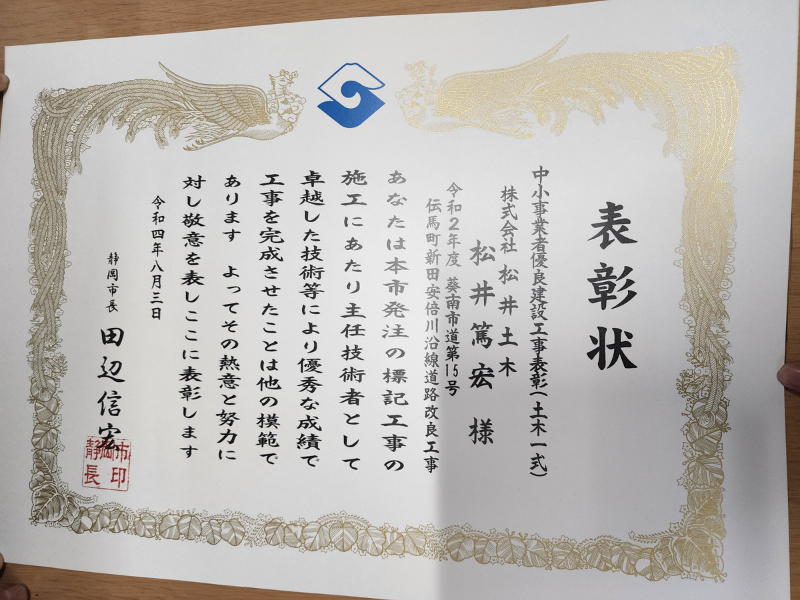 表彰状
中小事業者優良建設工事表彰(土木一式)
株式会社 松井土木
松井篤宏 様
令和2年度 葵南市道第15号
伝馬町新田安倍川沿線道路改良工事
あなたは本市発注の標記工事の
施工にあたり主任技術者として
卓越した技術等により優秀な成績で
工事を完成させたことは他の模範で
あります よってその熱意と努力に
対し敬意を表しここに表彰します
令和四年八月三日
静岡市長 田辺信宏
静岡市長印